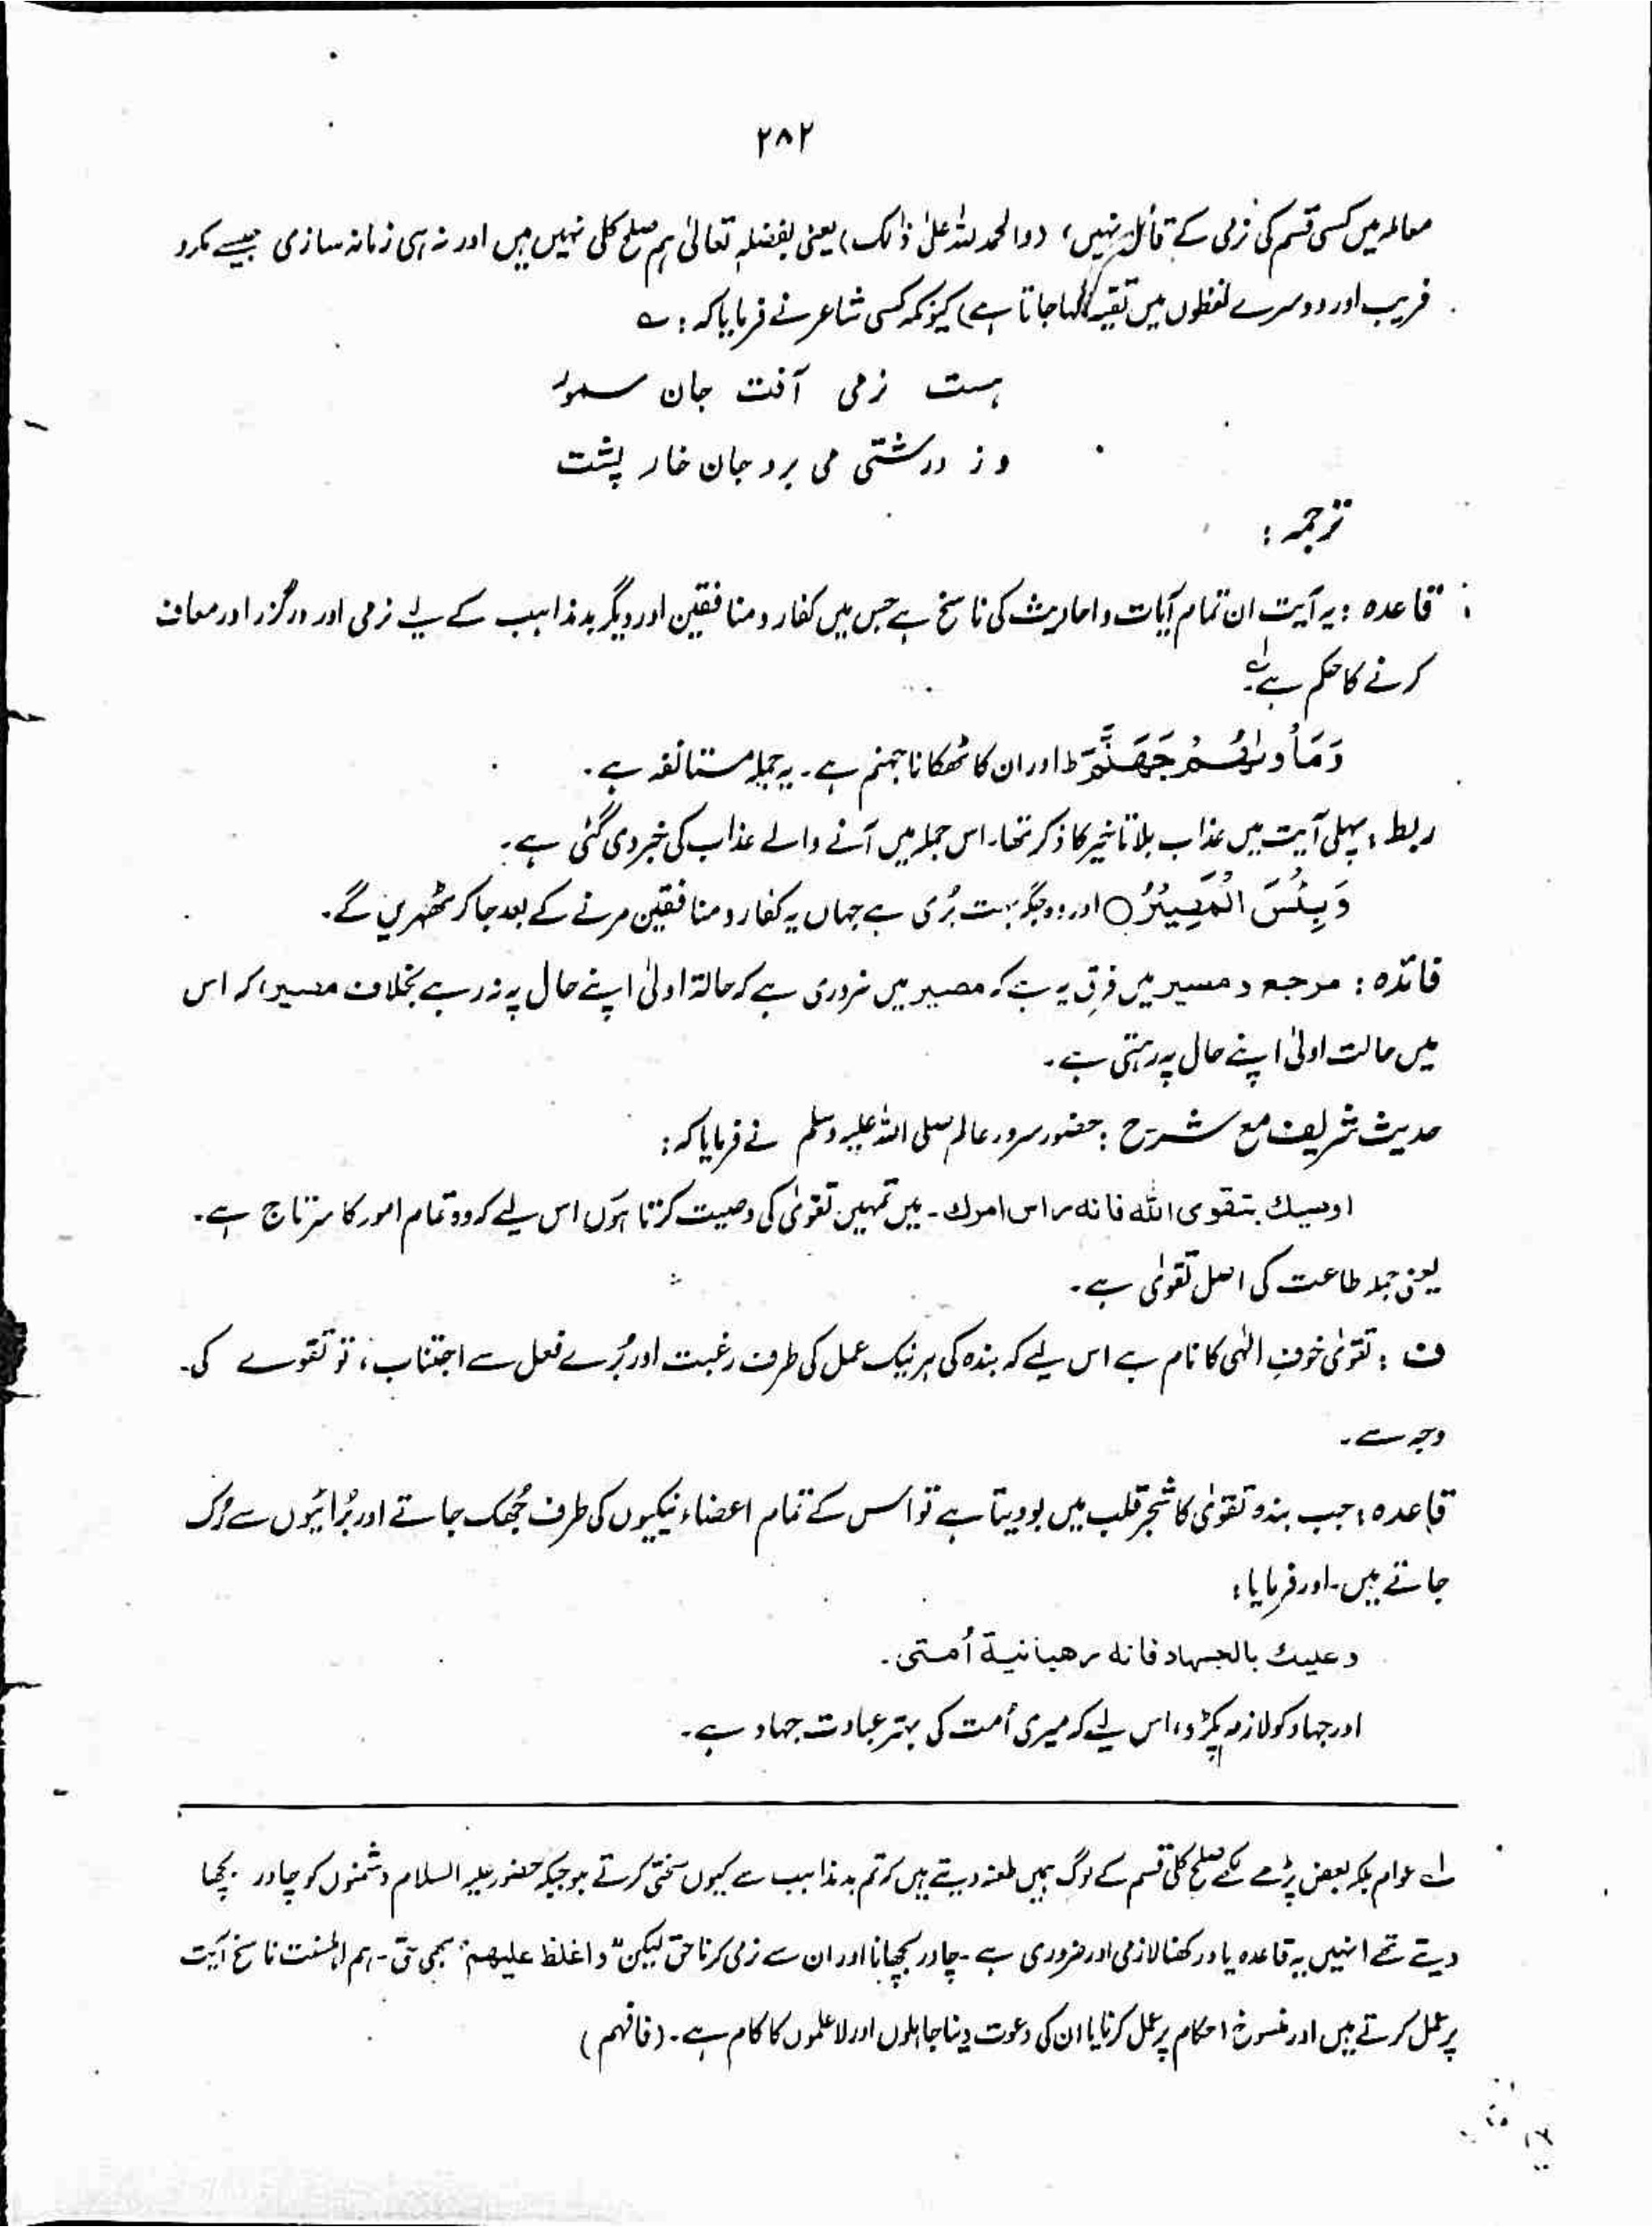 ۲۸۲
معاملہ میں کسی قسم کی نرمی کے قائل نہیں، (والحمد للہ علیٰ ذالک) یعنی بفضلہٖ تعالیٰ ہم صلح کلی نہیں ہیں اور نہ ہی زمانہ سازی جیسے مکرو
فریب اور دوسرے لفظوں میں تقیہ کہا جاتا ہے) کیونکہ کسی شاعر نے فرمایا کہ : ؎
ہست نرمی آفت جان سمور
وز درشتی می برد جان خار پشت
ترجمہ :
قاعدہ : یہ آیت ان تمام آیات و احادیث کی ناسخ ہے جس میں کفار و منافقین اور دیگر بد مذاہب کے لیے نرمی اور درگزر اور معاف
کرنے کا حکم ہے لہ
وَمَأْوٰىهُمْ جَهَنَّمُ ط اور ان کا ٹھکانا جہنم ہے۔ یہ جملہ مستانفہ ہے۔
ربط : پہلی آیت میں عذاب بلا تاخیر کا ذکر تھا۔ اس جملہ میں آنے والے عذاب کی خبر دی گئی ہے۔
وَبِئْسَ الْمَصِيْرُ ○ اور وہ جگہ بہت بُری ہے جہاں یہ کفار و منافقین مرنے کے بعد جا کر ٹھہریں گے۔
فائدہ : مرجع و مصیر میں فرق یہ ہے کہ مصیر میں ضروری ہے کہ حالۃ اولیٰ اپنے حال پہ نہ رہے بخلاف مصیر، کہ اس
میں حالت اولیٰ اپنے حال پہ رہتی ہے۔
حدیث شریف مع شرح : حضور سرور عالم صلی اللہ علیہ وسلم نے فرمایا کہ :
اوصيك بتقوى الله فانه راس امرك ۔ میں تمہیں تقویٰ کی وصیت کرتا ہوں اس لیے کہ وہ تمام امور کا سرتاج ہے۔
یعنی جملہ طاعت کی اصل تقویٰ ہے۔
ف : تقویٰ خوفِ الٰہی کا نام ہے اس لیے کہ بندہ کی ہر نیک عمل کی طرف رغبت اور بُرے فعل سے اجتناب، تو تقوے کی۔
وجہ سے۔
قاعدہ : جب بندہ تقویٰ کا شجر قلب میں بو دیتا ہے تو اس کے تمام اعضاء نیکیوں کی طرف جُھک جاتے اور بُرائیوں سے رُک
جاتے ہیں۔ اور فرمایا :
وعليك بالجهاد فانه رهبانية أُمتى۔
اور جہاد کو لازم پکڑو، اس لیے کہ میری اُمت کی بہتر عبادت جہاد ہے۔
لہ عوام بلکہ بعض پڑھے لکھے صلح کلی قسم کے لوگ ہمیں طعنہ دیتے ہیں کہ تم بد مذاہب سے کیوں سختی کرتے ہو جبکہ حضور علیہ السلام دشمنوں کو چادر بچھا
دیتے تھے انہیں یہ قاعدہ یاد رکھنا لازمی اور ضروری ہے۔ چادر بچھانا اور ان سے نرمی کرنا حق لیکن "واغلظ عليهم" بھی حق۔ ہم اہلسنت ناسخ آیت
پر عمل کرتے ہیں اور منسوخ احکام پر عمل کرنا یا ان کی دعوت دینا جاہلوں اور لاعلموں کا کام ہے۔ (فافہم)